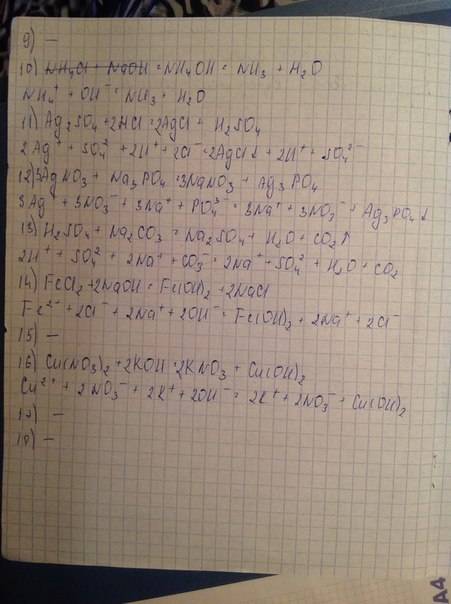 9) —
10) NH₄Cl + NaOH = NH₄OH = NH₃ + H₂O
NH₄⁺ + OH⁻ = NH₃ + H₂O
11) Ag₂SO₄ + 2HCl = 2AgCl + H₂SO₄
2Ag⁺ + SO₄²⁻ + 2H⁺ + 2Cl⁻ = 2AgCl↓ + 2H⁺ + SO₄²⁻
12) 3AgNO₃ + Na₃PO₄ = 3NaNO₃ + Ag₃PO₄
3Ag⁺ + 3NO₃⁻ + 3Na⁺ + PO₄³⁻ = 3Na⁺ + 3NO₃⁻ + Ag₃PO₄↓
13) H₂SO₄ + Na₂CO₃ = Na₂SO₄ + H₂O + CO₂↑
2H⁺ + SO₄² + 2Na⁺ + CO₃⁻ = 2Na⁺ + SO₄² + H₂O + CO₂
14) FeCl₂ + 2NaOH = Fe(OH)₂ + 2NaCl
Fe²⁺ + 2Cl⁻ + 2Na⁺ + 2OH⁻ = Fe(OH)₂ + 2Na⁺ + 2Cl⁻
15) —
16) Cu(NO₃)₂ + 2KOH = 2KNO₃ + Cu(OH)₂
Cu²⁺ + 2NO₃⁻ + 2K⁺ + 2OH⁻ = 2K⁺ + 2NO₃⁻ + Cu(OH)₂
17) —
18) —
A4